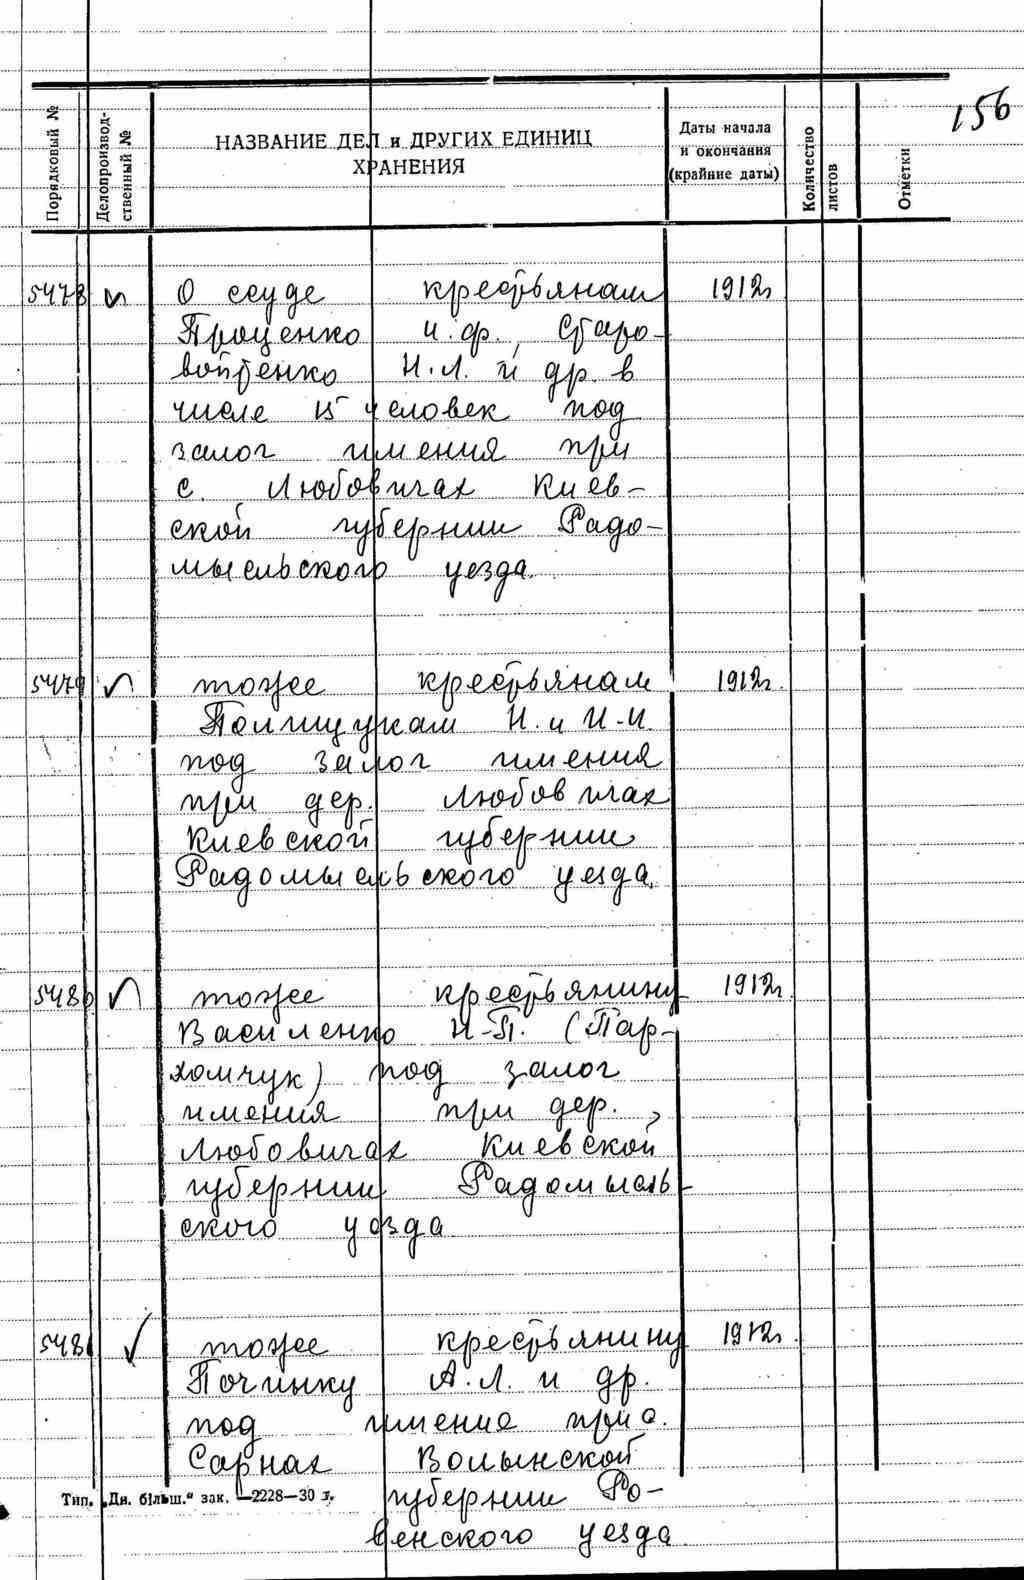 156
Порядковый №
Делопроизвод-
ственный №
НАЗВАНИЕ ДЕЛ и ДРУГИХ ЕДИНИЦ
ХРАНЕНИЯ
Даты начала
и окончания
(крайние даты)
Количество
листов
Отметки
5478 О ссуде крестьянам 1912г
Проценко И.Ф., Старо-
войтенко Н.Л. и др. в
числе 15 человек под
залог имения при
с. Любовичах Киев-
ской губернии Радо-
мысльского уезда.
5479 тоже крестьянам 1912г.
Полищукам Н. и И.И.
под залог имения
при дер. Любовичах
Киевской губернии
Радомысльского уезда.
5480 тоже крестьянину 1912г
Василенко И.П. (Пар-
хомчук) под залог
имения при дер.
Любовичах Киевской
губернии Радомысль-
ского уезда
5481 тоже крестьянину 1912г.
Починку А.Л. и др.
под имение при с.
Сарнах Волынской
губернии Ро-
венского уезда
Тип. „Дн. більш." зак. —2228—30 г.